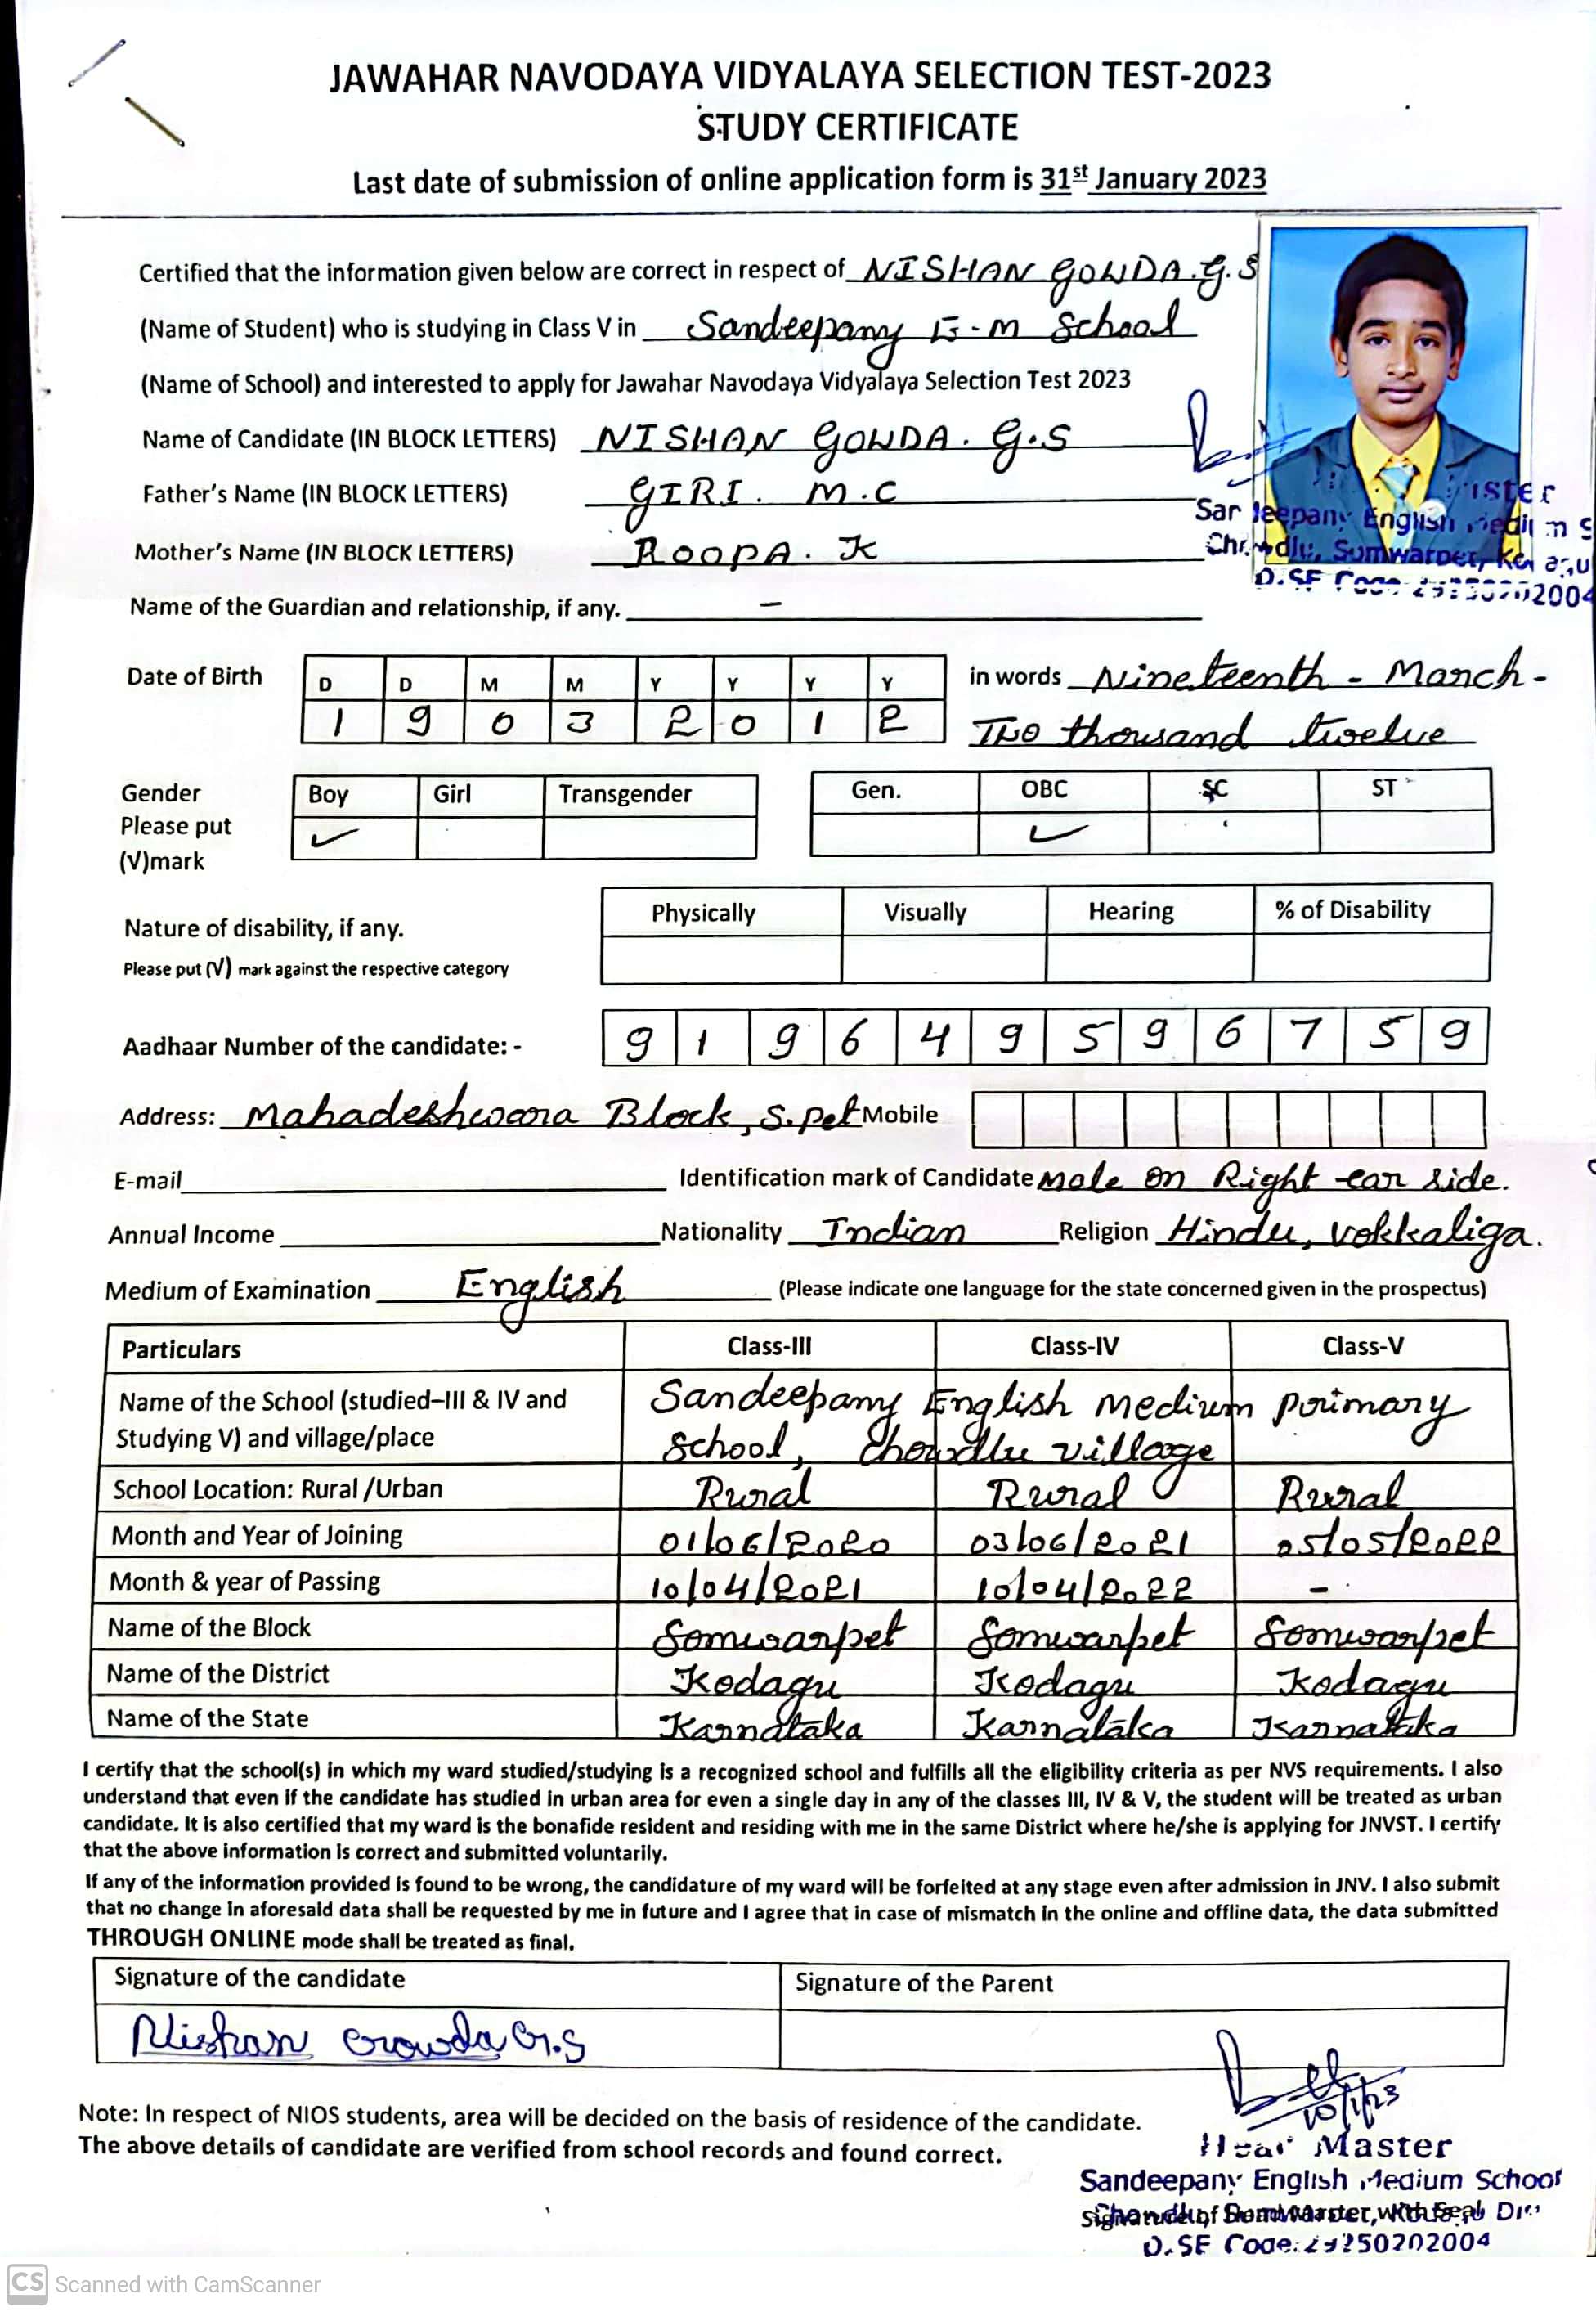 JAWAHAR NAVODAYA VIDYALAYA SELECTION TEST-2023
STUDY CERTIFICATE
Last date of submission of online application form is 31st January 2023
Certified that the information given below are correct in respect of NISHAN GOWDA.G.S
(Name of Student) who is studying in Class V in Sandeepany E-m School
(Name of School) and interested to apply for Jawahar Navodaya Vidyalaya Selection Test 2023
Name of Candidate (IN BLOCK LETTERS) NISHAN GOWDA. G.S
Father's Name (IN BLOCK LETTERS) GIRI. M.C
Mother's Name (IN BLOCK LETTERS) ROOPA. K
Name of the Guardian and relationship, if any. –
Date of Birth D D M M Y Y Y Y in words Nineteenth - March -
1 9 0 3 2 0 1 2 Two thousand twelve
Gender Boy Girl Transgender Gen. OBC SC ST
Please put ✓ ✓
(√)mark
Nature of disability, if any. Physically Visually Hearing % of Disability
Please put (√) mark against the respective category
Aadhaar Number of the candidate: - 9 1 9 6 4 9 5 9 6 7 5 9
Address: Mahadeshwara Block, S.pet Mobile
E-mail Identification mark of Candidate mole on Right ear side.
Annual Income Nationality Indian Religion Hindu, vokkaliga.
Medium of Examination English (Please indicate one language for the state concerned given in the prospectus)
Particulars Class-III Class-IV Class-V
Name of the School (studied–III & IV and Sandeepany English medium primary
Studying V) and village/place School, Chowdlu village
School Location: Rural /Urban Rural Rural Rural
Month and Year of Joining 01/06/2020 03/06/2021 05/05/2022
Month & year of Passing 10/04/2021 10/04/2022 –
Name of the Block Somwarpet Somwarpet Somwarpet
Name of the District Kodagu Kodagu Kodagu
Name of the State Karnataka Karnataka Karnataka
I certify that the school(s) in which my ward studied/studying is a recognized school and fulfills all the eligibility criteria as per NVS requirements. I also
understand that even if the candidate has studied in urban area for even a single day in any of the classes III, IV & V, the student will be treated as urban
candidate. It is also certified that my ward is the bonafide resident and residing with me in the same District where he/she is applying for JNVST. I certify
that the above information is correct and submitted voluntarily.
If any of the information provided is found to be wrong, the candidature of my ward will be forfeited at any stage even after admission in JNV. I also submit
that no change in aforesaid data shall be requested by me in future and I agree that in case of mismatch in the online and offline data, the data submitted
THROUGH ONLINE mode shall be treated as final.
Signature of the candidate Signature of the Parent
Nishan Gowda G.S
10/1/23
Note: In respect of NIOS students, area will be decided on the basis of residence of the candidate.
The above details of candidate are verified from school records and found correct.
Master
Sandeepany English Medium School
Signature of Head Master, with Seal
CS Scanned with CamScanner